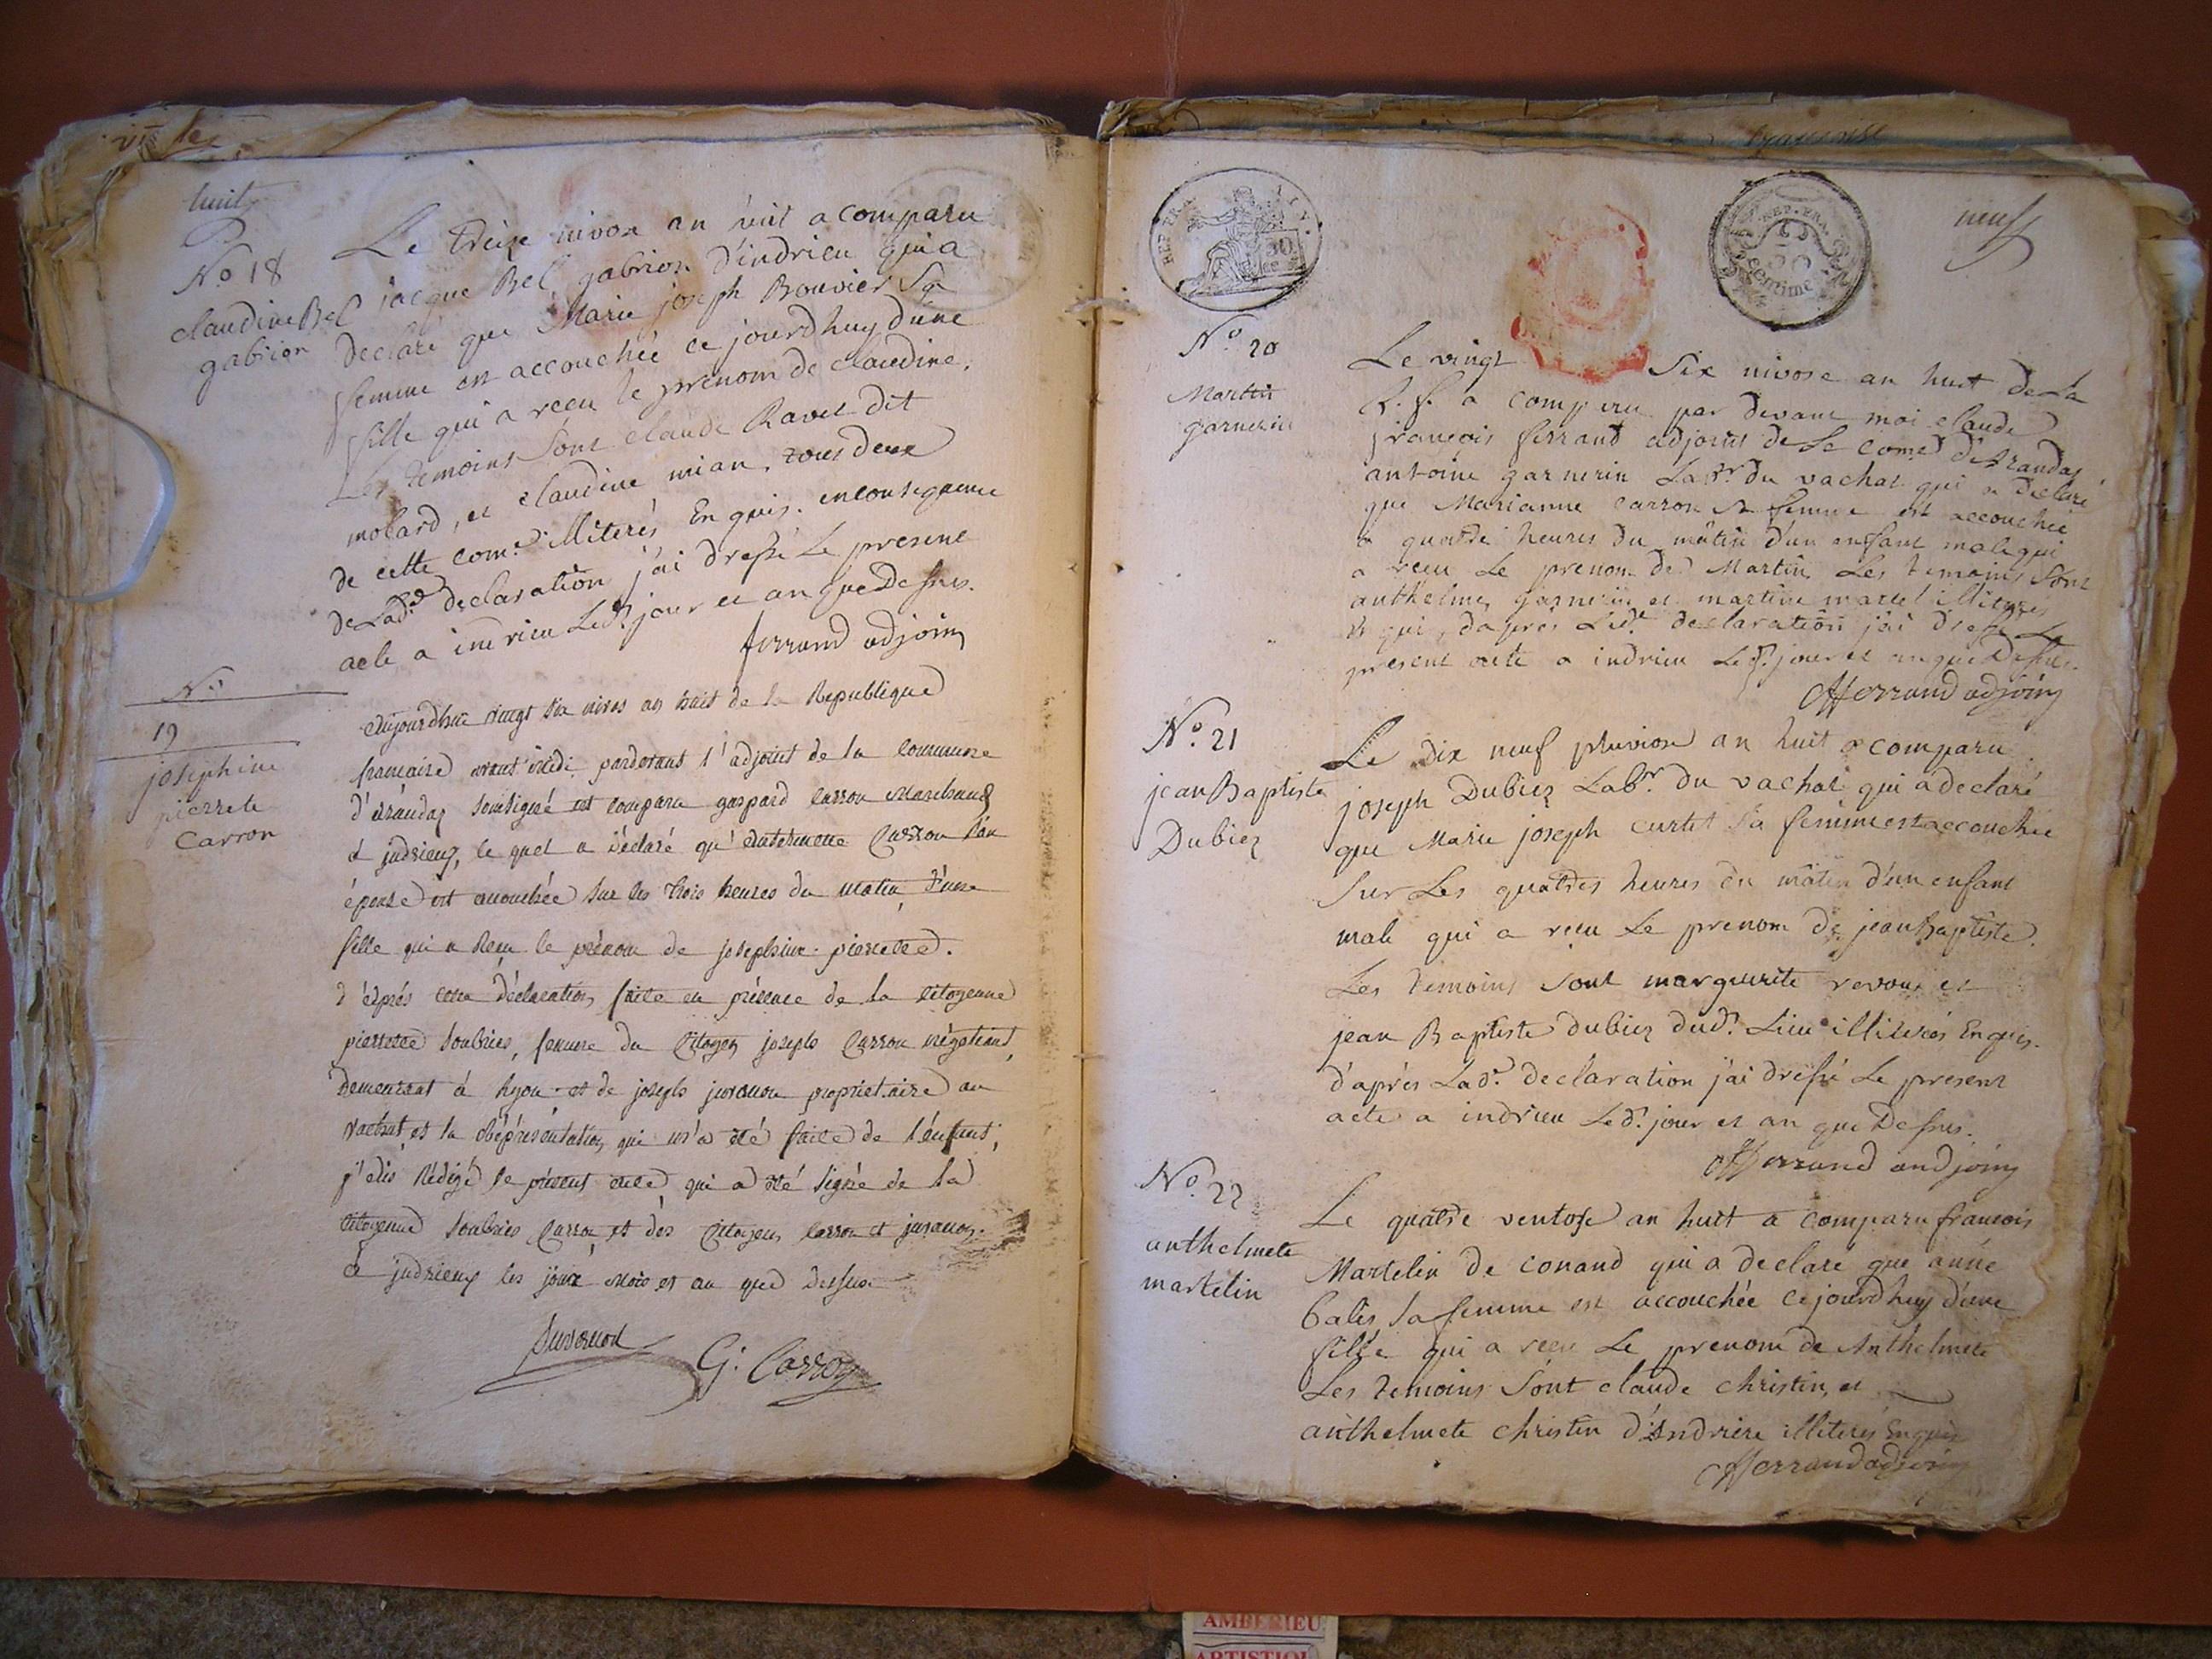 huit
No 18
claudine Bel
gabrion
Le treize nivose an huit a comparu
jacque Bel gabrion d'indrieu qui a
declaré que Marie joseph Bouvier Sa
femme est accouchée ce jourdhuy d'une
fille qui a recu le prenom de claudine.
Les temoins sont claude Ravet dit
molard, et claudine mian, tous deux
de cette com.e illiterés Enquis. en consequence
de Lad.e declaration j'ai dressé Le present
acte a indrieu Led. jour et an que Dessus.
ferrand adjoin
No
19
josephine
pierrete
Carron
aujourdhui vingt six nivos an huit de la Republique
francaise avant midi pardevant l'adjoint de la commune
d'arandas soussigné est comparu gaspard Carron Marchand
à indrieux, le quel a déclaré qu' Carron son
épouse est accouchée sur les trois heures du matin, d'une
fille qui a Recu le prénom de josephine pierrete.
d'après cette déclaration, faite en présence de la citoyenne
pierrete femme du Citoyen joseph Carron négotiant,
demeurant à Lyon et de joseph juvanon propriétaire au
vachat et la réprésentation qui m'a été faite de l'enfant,
j'ais Rédigé le présent acte, qui a été signé de la
citoyenne Carron et des Citoyens Carron et juvanon.
à indrieux les jour mois et an que dessus
Juvanon G: Carron
REP. FRA.
30
neuf
REP. FRA.
centime
No. 20
Martin
garnerin
Le vingt Six nivose an huit de La
R. f. a comparu par devant moi claude
françois ferrand adjoint de Le com.e d'Arandas
antoine garnerin Lab.r du vachat qui a declaré
que Marianne carron Sa femme est accouchée
a quatre heures du matin d'un enfant male qui
a recu Le prenom de Martin Les temoins Sont
anthelme garnerin et martine martel illiterés
Enquis, d'apres Lad.e declaration j'ai dressé Le
present acte a indrieu Led. jour et an que Dessus.
Cfferrand adjoin
No. 21
jean Baptiste
Dubiez
Le dix neuf pluviose an huit a comparu
joseph Dubiez Lab.r du vachat qui a declaré
que Marie joseph curtet sa femme est accouchée
sur Les quatres heures du matin d'un enfant
male qui a recu Le prenom de jean Baptiste.
Les temoins sont margurite revoux et
jean Baptiste Dubiez dud. Lieu illiterés Enquis.
d'après Lad.e declaration j'ai dressé Le present
acte a indrieu Led. jour et an que Dessus.
Cfferrand andjoin
No. 22
anthelmete
martelin
Le quatre ventose an huit a comparu francois
Martelin de conand qui a declaré que anne
Balis sa femme est accouchée ce jourdhuy d'une
fille qui a recu Le prenom de Anthelmete
Les temoins sont claude christin, et
anthelmete christin d'Andrieu illiterés Enquis
Cfferrand adjoin
AMBERIEU